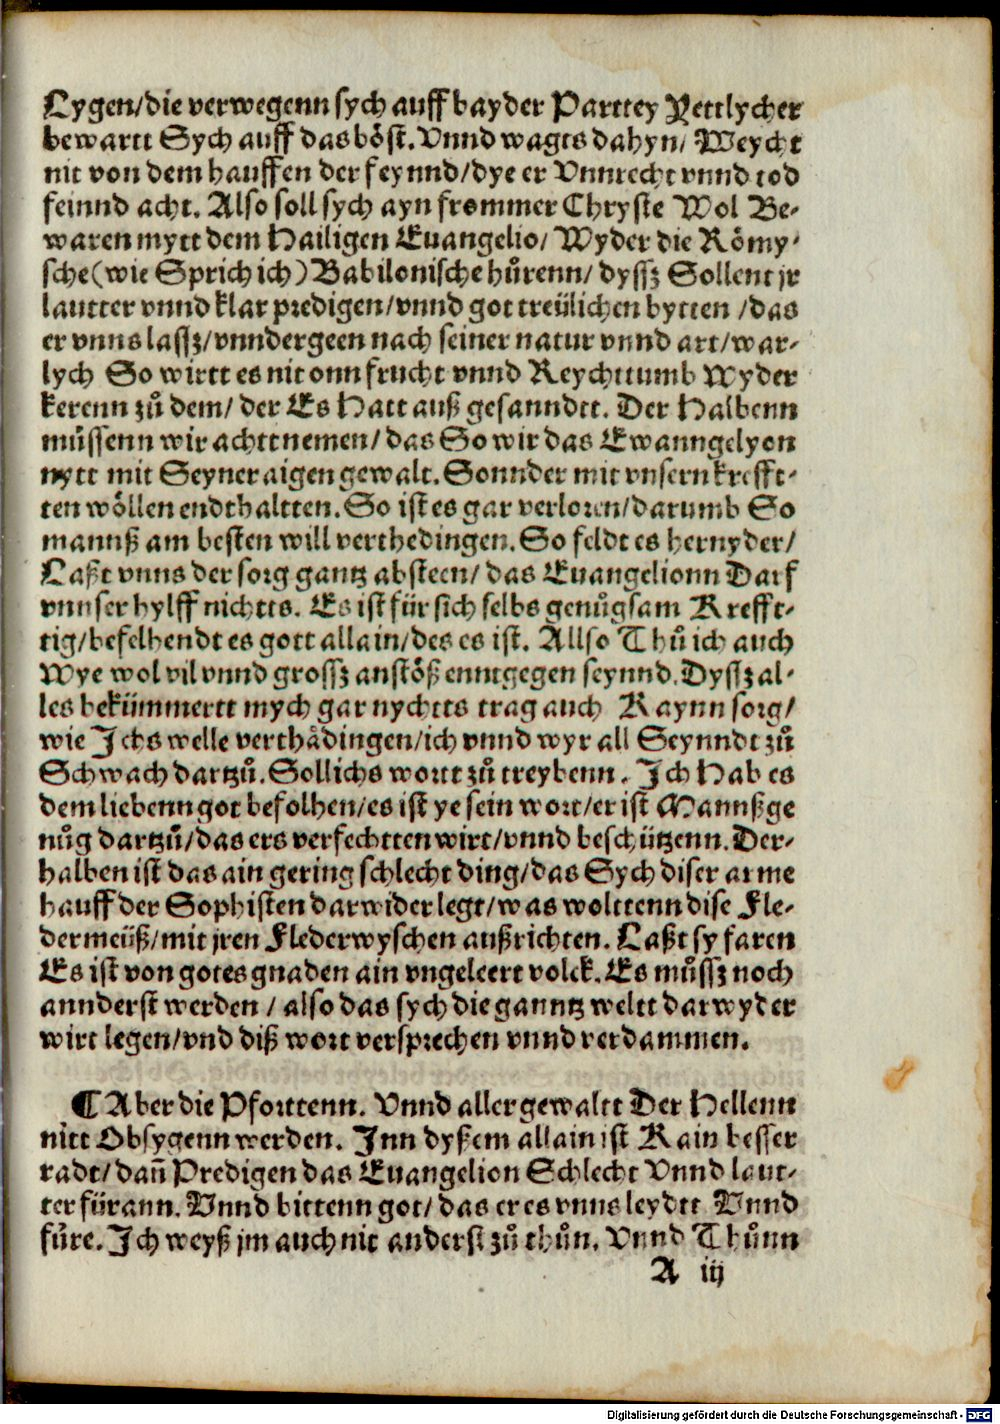 Lygen/die verwegenn sych auff bayder Parttey Yettlycher
bewartt Sych auff das böst. Vnnd wagts dahyn/ Weycht
nit von dem hauffen der feynnd/dye er Vnnrecht vnnd tod
feinnd acht. Also soll sych ayn frommer Chryste Wol Be-
waren mytt dem Hailigen Euangelio/ Wyder die Römy-
sche(wie Sprich ich) Babilonische hůrenn/ dyssz Sollent jr
lautter vnnd klar predigen/vnnd got treülichen bytten /das
er vnns lassz/vnndergeen nach seiner natur vnnd art/war-
lych So wirtt es nit onn frucht vnnd Reychttumb Wyder
kerenn zů dem/ der Es Hatt auß gesanndtt. Der Halbenn
müssenn wir achtt nemen/ das So wir das Ewanngelyon
nytt mit Seyner aigen gewalt. Sonnder mit vnsern krefft-
ten wöllen endthaltten. So ist es gar verloren/darumb So
mannß am besten will verthedingen. So feldt es hernyder/
Laßt vnns der sorg gantz absteen/ das Euangelionn Darf
vnnser hylff nichtts. Es ist für sich selbs genůgsam Krefft-
tig/befelhendt es gott allain/des es ist. Allso Thů ich auch
Wye wol vil vnnd grossz anstöß enntgegen seynnd. Dyssz al-
les bekümmertt mych gar nychtts trag auch Kaynn sorg/
wie Ichs welle verthådingen/ich vnnd wyr all Seynndt zů
Schwach dartzů. Sollichs wortt zů treybenn. Ich Hab es
dem liebenn got befolhen/es ist ye sein wort/er ist Mannß ge
nůg dartzů/das ers verfechtten wirt/vnnd beschützenn. Der-
halben ist das ain gering schlecht ding/das Sych diser arme
hauff der Sophisten darwider legt/was wolttenn dise Fle-
dermeüß/mit jren Flederwyschen außrichten. Laßt sy faren
Es ist von gotes gnaden ain vngeleert volck. Es můssz noch
annderst werden / also das sych die ganntz weltt darwyder
wirt legen/vnd diß wort versprechen vnnd verdammen.
¶ Aber die Pforttenn. Vnnd aller gewaltt Der Hellenn
nitt Obsygenn werden. Inn dyßem allain ist Kain besser
radt/dañ Predigen das Euangelion Schlecht Vnnd laut-
ter fürann. Vnnd bittenn got/ das er es vnns leydtt Vnnd
fůre. Ich weyß jm auch nit anderst zů thůn. Vnnd Thůnn
A iij
Digitalisierung gefördert durch die Deutsche Forschungsgemeinschaft - DFG